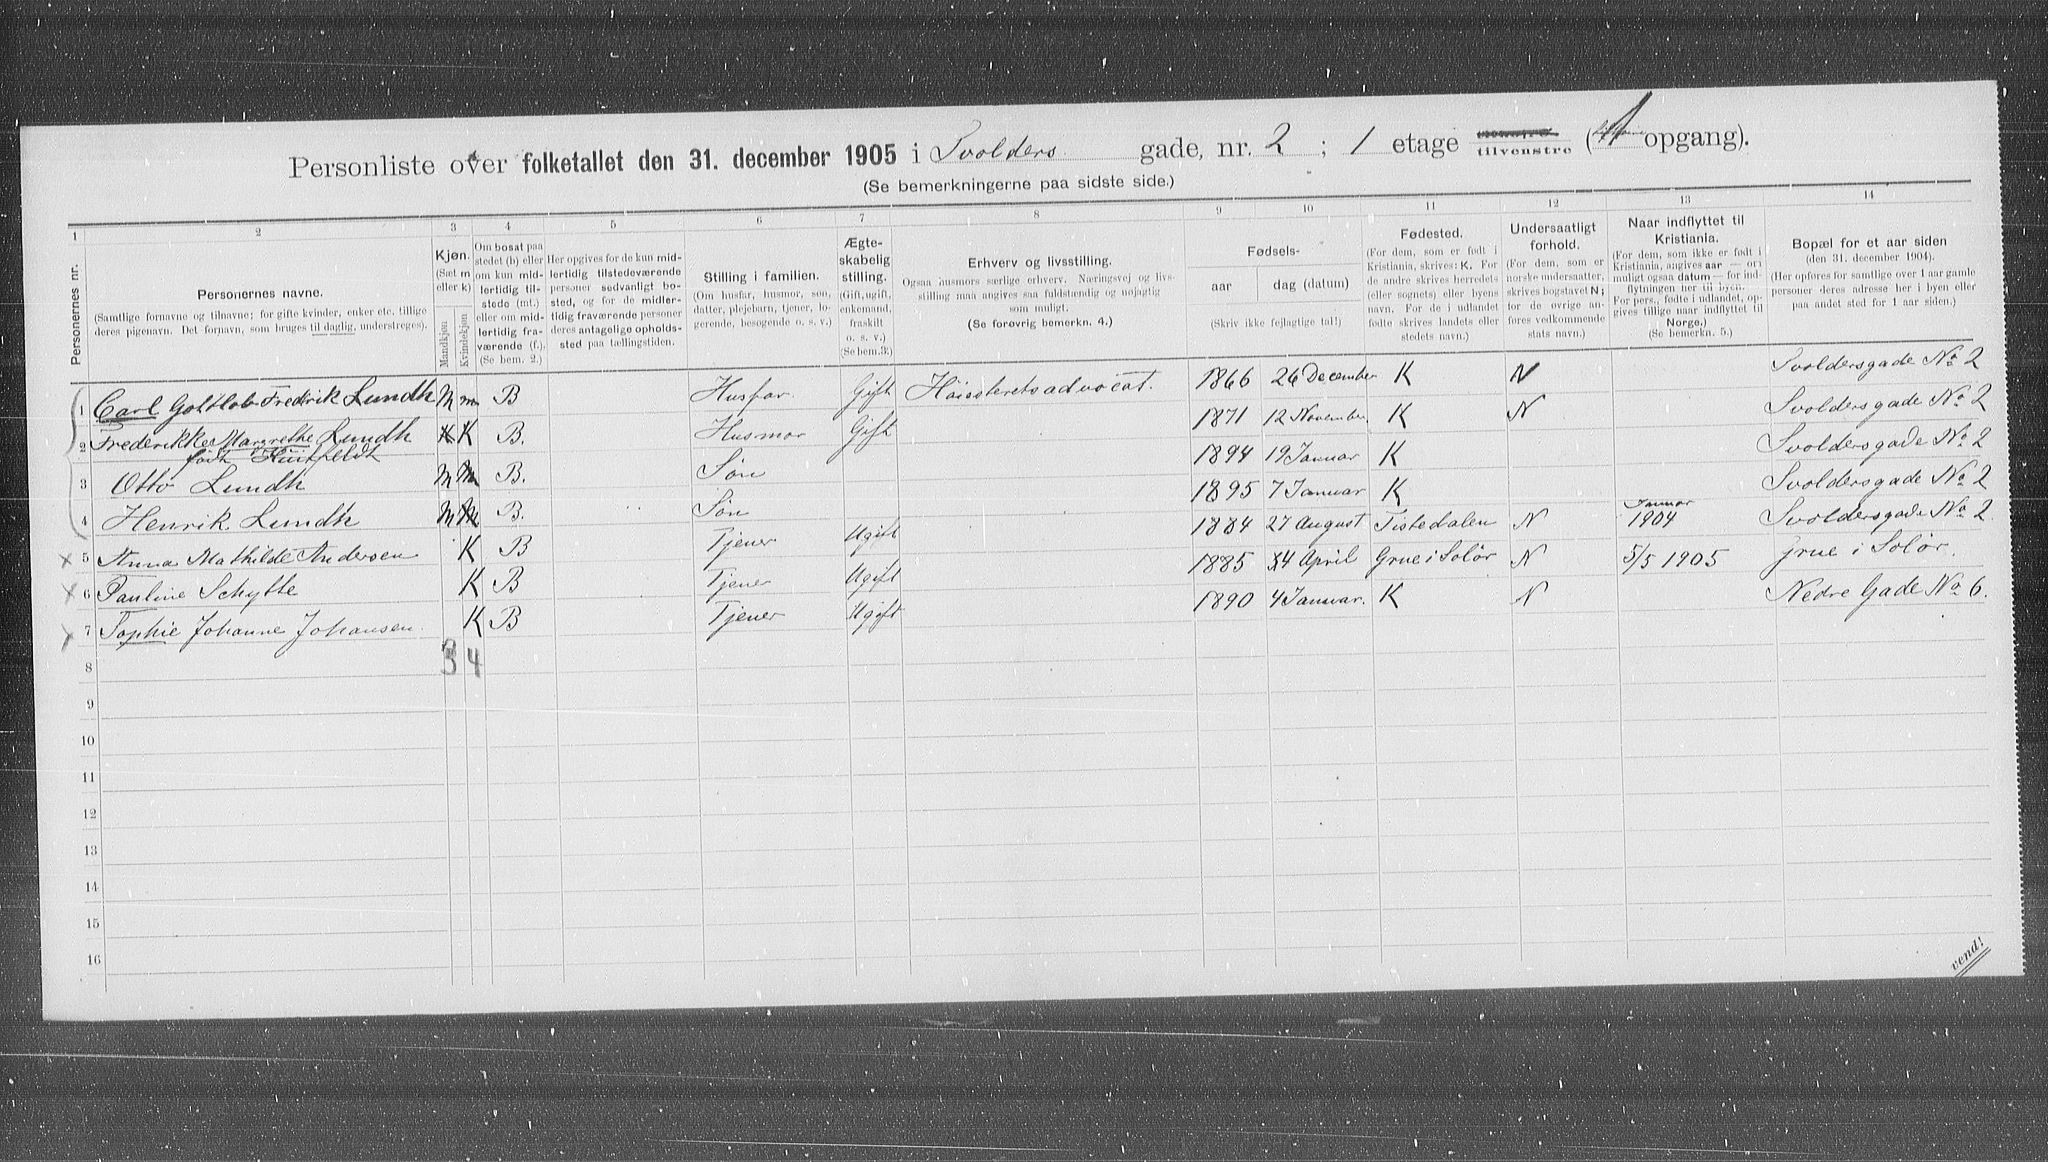 Personliste over folketallet den 31. december 1905 i Svolders gade, nr. 2 ; 1 etage tilvenstre ( opgang).
(Se bemerkningerne paa sidste side.)
1 2 3 4 5 6 7 8 9 10 11 12 13 14
Personernes nr.
Personernes navne.
(Samtlige fornavne og tilnavne; for gifte kvinder, enker etc. tillige
deres pigenavn. Det fornavn, som bruges til daglig, understreges).
Kjøn.
(Sæt m
eller k)
Mandkjøn
Kvindekjøn
Om bosat paa
stedet (b) eller
om kun mid-
lertidig til-
stede (mt.)
eller om mid-
lertidig fra-
værende (f.).
(Se bem. 2.)
Her opgives for de kun mid-
lertidig tilstedeværende
personer sedvanligt bo-
sted, og for de midler-
tidig fraværende personer
deres antagelige opholds-
sted paa tællingstiden.
Stilling i familien.
(Om husfar, husmor, søn,
datter, plejebarn, tjener, lo-
gerende, besøgende o. s. v.)
Ægte-
skabelig
stilling.
(Gift, ugift,
enkemand,
fraskilt
o. s. v.)
(Se bem.3.)
Erhverv og livsstilling.
Ogsaa husmors særlige erhverv. Næringsvej og livs-
stilling maa angives saa fuldstændig og nøjagtig
som muligt.
(Se forøvrig bemerkn. 4.)
Fødsels-
aar dag (datum)
(Skriv ikke fejlagtige tal!)
Fødested.
(For dem, som er født i
Kristiania, skrives: K. For
de andre skrives herredets
(eller sognets) eller byens
navn. For de i udlandet
fødte skrives landets eller
stedets navn.)
Undersaatligt
forhold.
(For dem, som er
norske undersaatter,
skrives bogstavet N;
for de øvrige an-
føres vedkommende
stats navn.)
Naar indflyttet til
Kristiania.
(For dem, som ikke er født i
Kristiania, angives aar — om
muligt ogsaa datum — for ind-
flytningen her til byen.
For pers., fødte i udlandet, op-
gives tillige naar indflyttet til
Norge.)
(Se bemerkn. 5.)
Bopæl for et aar siden
(den 31. december 1904).
(Her opføres for samtlige over 1 aar gamle
personer deres adresse her i byen eller
paa andet sted for 1 aar siden.)
1 Carl Gottlob Fredrik Lundh M m B Husfar. Gift Høiesteretsadvocat. 1866 26 December K N Svoldersgade No 2
2 Frederikke Margrethe Lundh K B. Husmor Gift 1871 12 November. K N Svoldersgade No 2
født Huitfeldt
3 Otto Lundh M m B. Søn 1894 19 Januar K Svoldersgade No 2
4 Henrik Lundh M m B. Søn 1895 7 Januar K Svoldersgade No 2
5 Anna Mathilde Andersen K B Tjener Ugift 1884 27 August Tistedalen N Januar 1904 Svoldersgade No 2.
6 Pauline Schytte K B Tjener Ugift 1885 4 April Grue i Solør N 5/5 1905 Grue i Solør.
7 Sophie Johanne Johansen. K B Tjener Ugift 1890 4 Januar. K N Nedre Gade No 6.
8 3 4
9
10
11
12
13
14
15
16
vend!